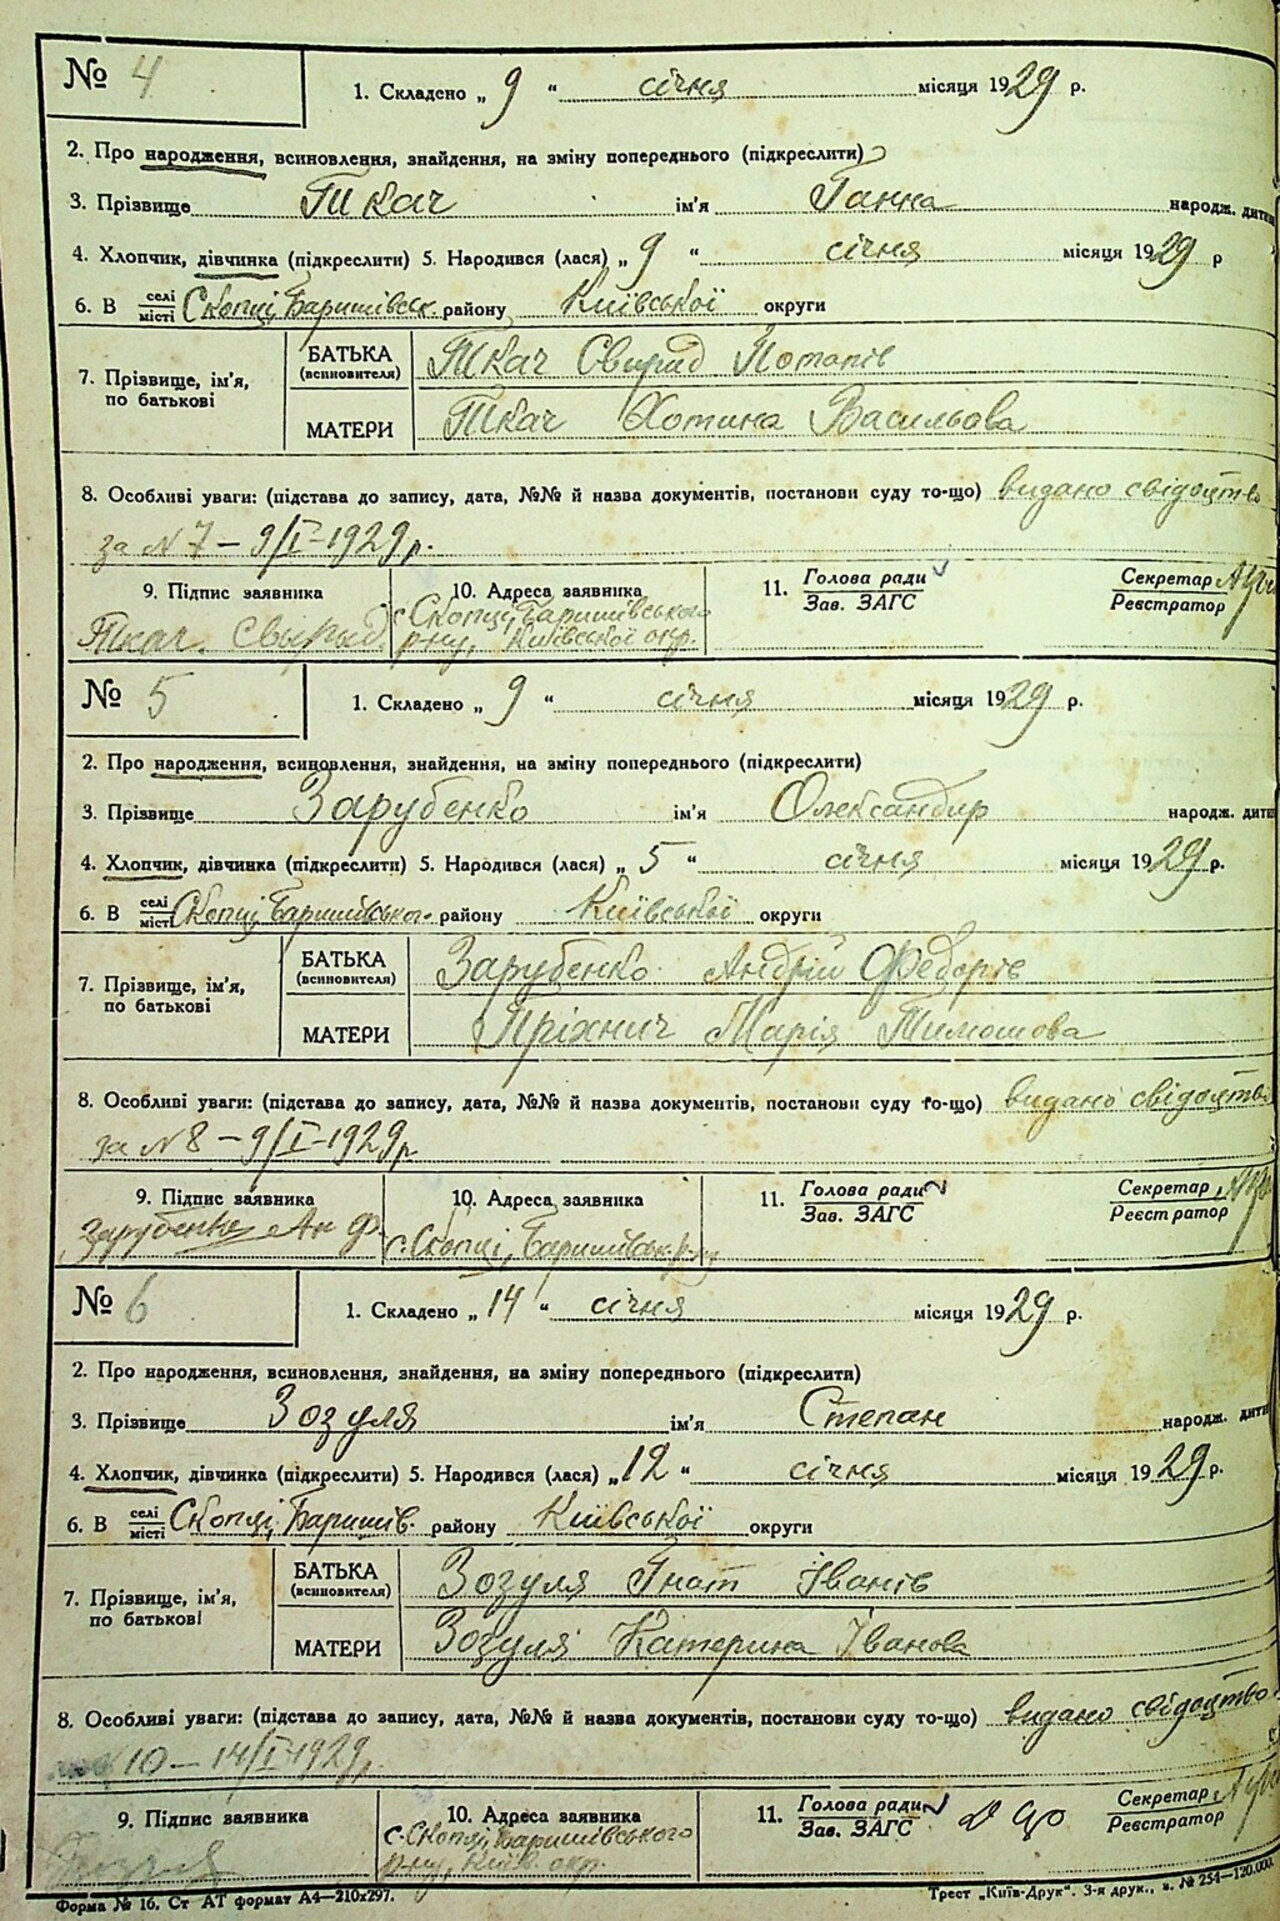 № 4 1. Складено „ 9 “ січня місяця 1929 р.
2. Про народження, всиновлення, знайдення, на зміну попереднього (підкреслити)
3. Прізвище Ткач ім'я Ганна народж. дитини
4. Хлопчик, дівчинка (підкреслити) 5. Народився (лася) „ 9 “ січня місяця 1929 р
6. В селі місті Скопці, Баришівськ. району Київської округи
7. Прізвище, ім'я, по батькові
БАТЬКА (всиновителя) Ткач Свирид Потапів
МАТЕРИ Ткач Хотина Васильова
8. Особливі уваги: (підстава до запису, дата, №№ й назва документів, постанови суду то-що) видано свідоцтво
за N 7 – 9/I–1929р.
9. Підпис заявника 10. Адреса заявника 11. Голова ради Секретар
Зав. ЗАГС Реєстратор
Ткач Свирид с. Скопці, Баришівського
р-ну, Київської окр.
№ 5 1. Складено „ 9 “ січня місяця 1929 р.
2. Про народження, всиновлення, знайдення, на зміну попереднього (підкреслити)
3. Прізвище Зарубенко ім'я Олександир народж. дити
4. Хлопчик, дівчинка (підкреслити) 5. Народився (лася) „ 5 “ січня місяця 1929 р.
6. В селі місті Скопці Баришівського району Київської округи
7. Прізвище, ім'я, по батькові
БАТЬКА (всиновителя) Зарубенко Андрій Федорів
МАТЕРИ Пріхнич Марія Тимошова
8. Особливі уваги: (підстава до запису, дата, №№ й назва документів, постанови суду то-що) видано свідоцтво
за N 8 – 9/I–1929р
9. Підпис заявника 10. Адреса заявника 11. Голова ради Секретар
Зав. ЗАГС Реєстратор
Зарубенко Ан Ф. с. Скопці, Баришівськ. р-ну
№ 6 1. Складено „ 14 “ січня місяця 1929 р.
2. Про народження, всиновлення, знайдення, на зміну попереднього (підкреслити)
3. Прізвище Зозуля ім'я Степан народж. дити
4. Хлопчик, дівчинка (підкреслити) 5. Народився (лася) „ 12 “ січня місяця 1929 р.
6. В селі місті Скопці, Баришів. району Київської округи
7. Прізвище, ім'я, по батькові
БАТЬКА (всиновителя) Зозуля Гнат Іванів
МАТЕРИ Зозуля Катерина Іванова
8. Особливі уваги: (підстава до запису, дата, №№ й назва документів, постанови суду то-що) видано свідоцтво
10 – 14/I–1929р
9. Підпис заявника 10. Адреса заявника 11. Голова ради Секретар
Зав. ЗАГС Реєстратор
с. Скопці, Баришівського
р-ну, Київ. окр.
Форма № 16. Ст АТ формат А4—210х297. Трест „Київ-Друк“. 3-я друк., з. № 254—120.000.